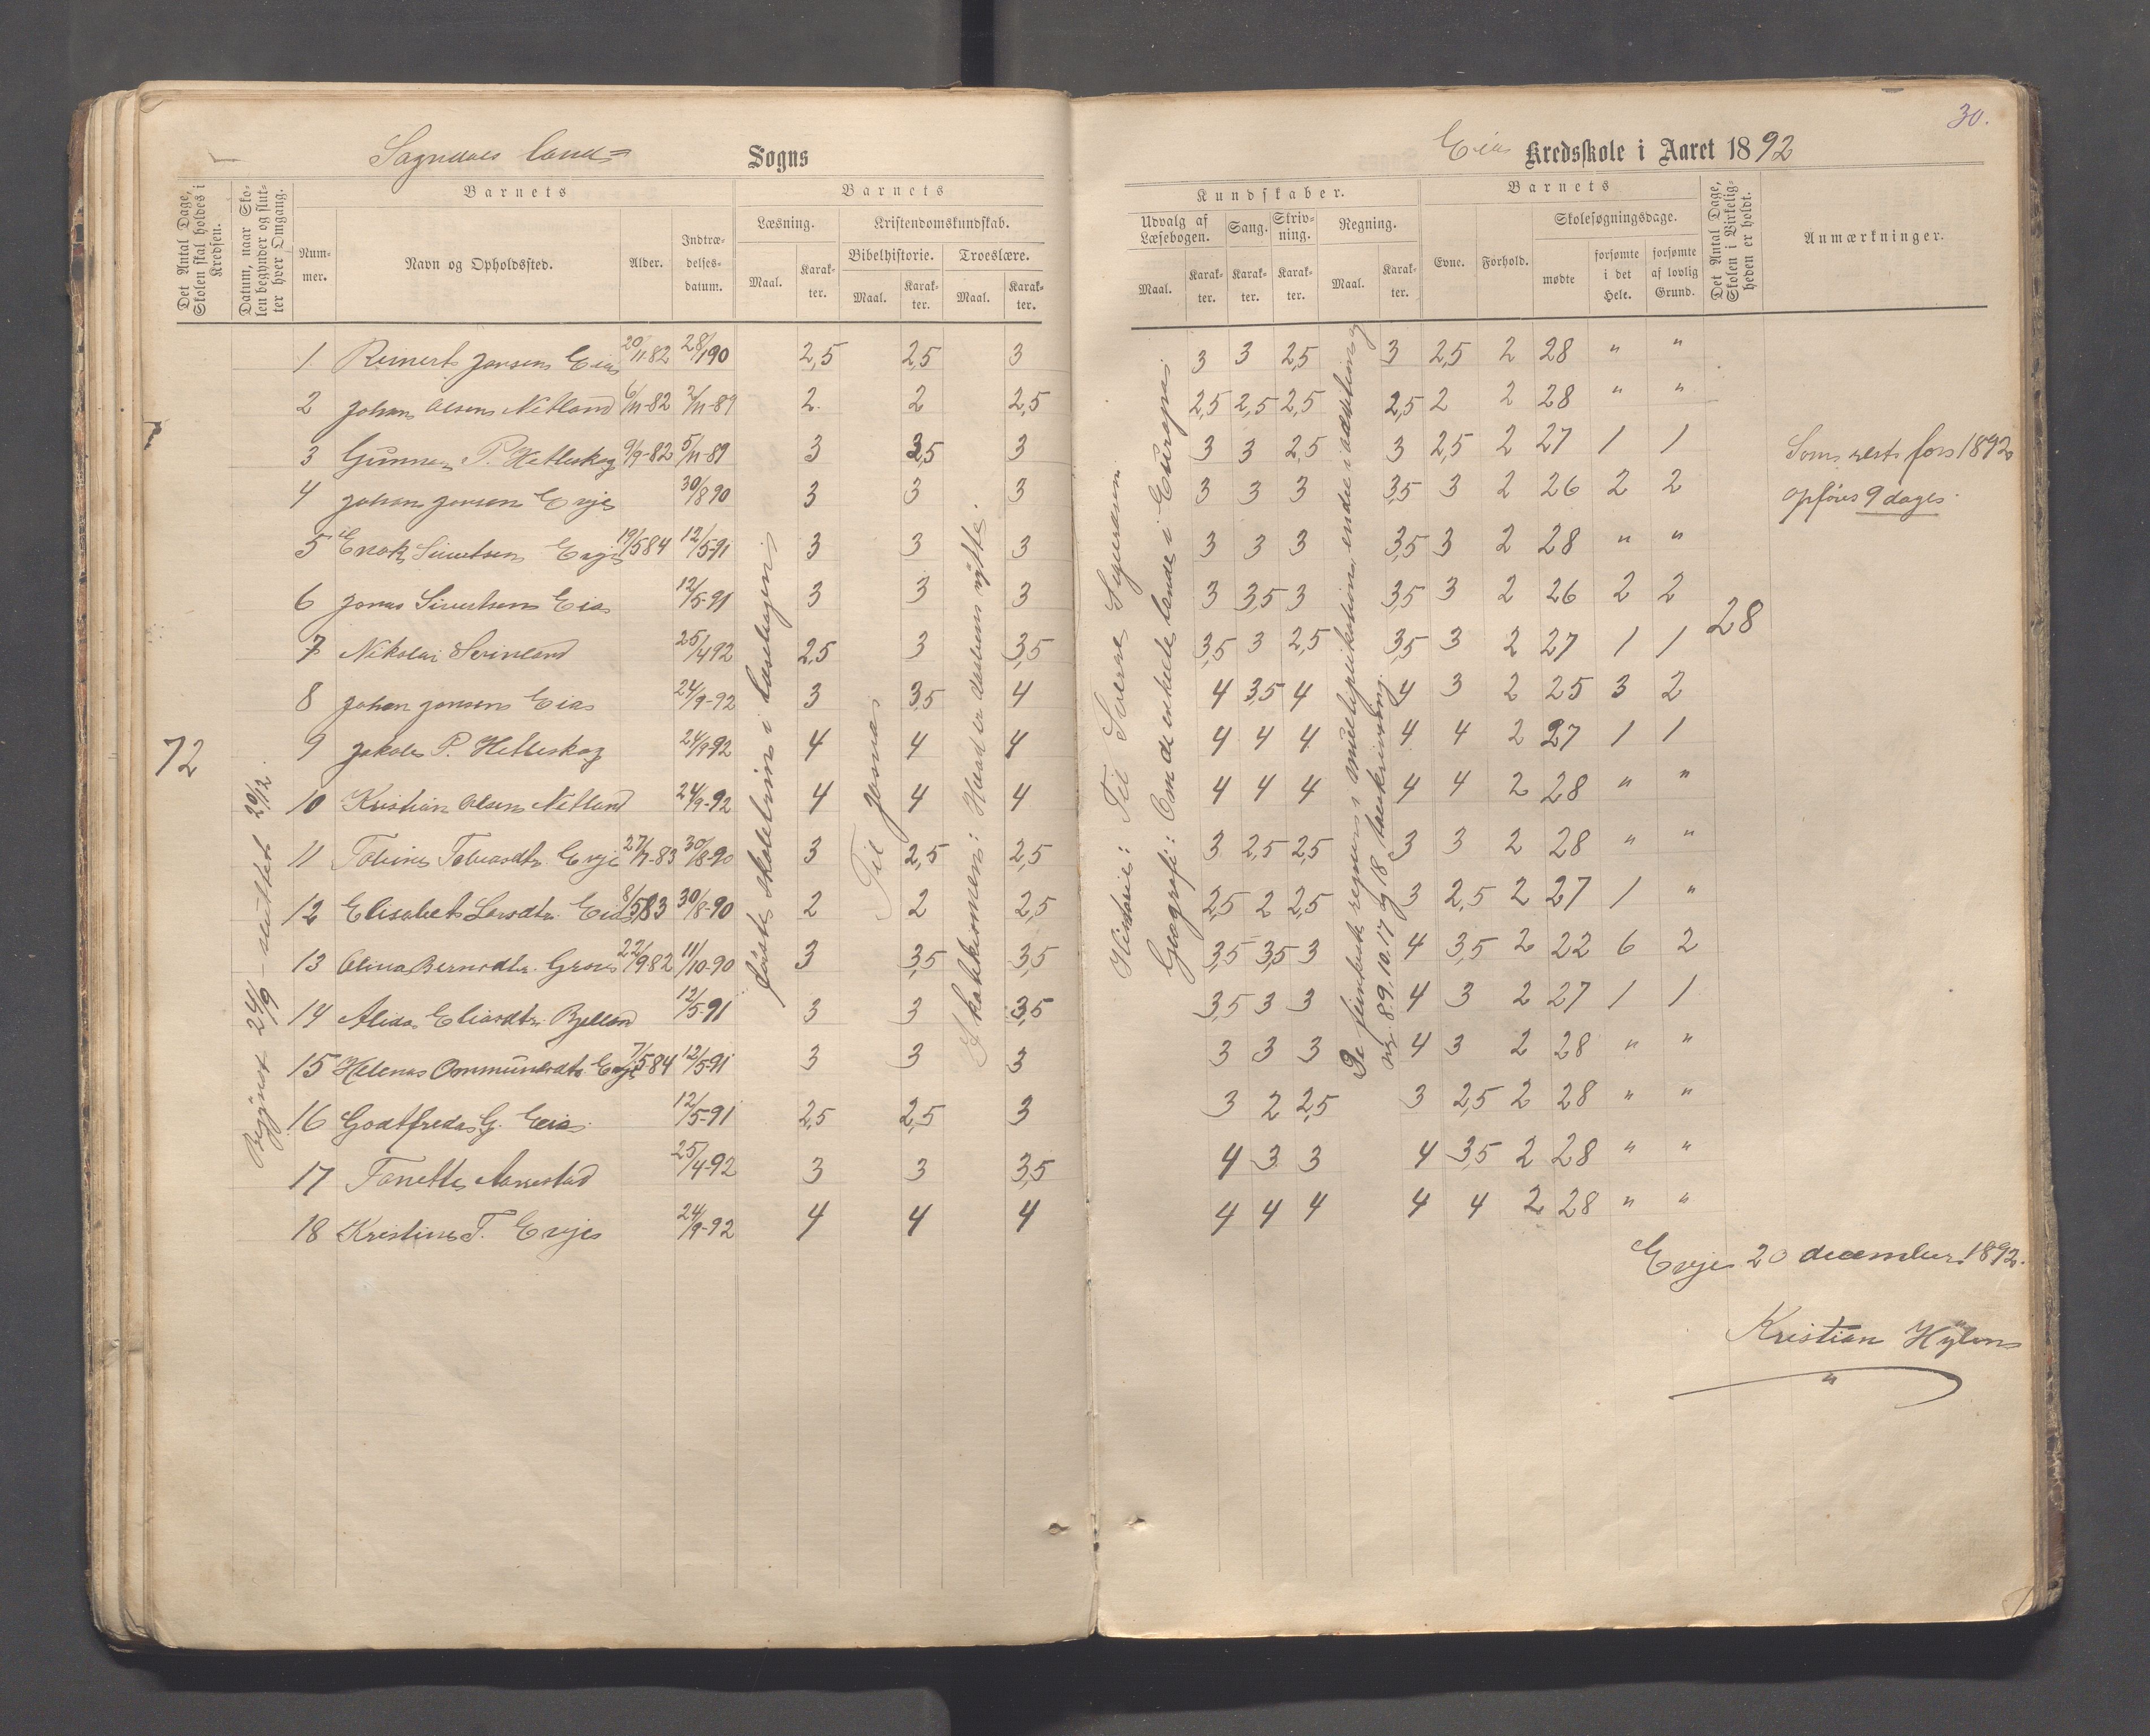 30.
Sogndals land= Sogns
Eia Kredsskole i Aaret 1892
Det Antal Dage, Skolen skal holdes i Kredsen.
Datum, naar Skolen begynder og slutter hver Omgang.
Barnets
Nummer.
Navn og Opholdssted.
Alder.
Indtrædelsesdatum.
Barnets
Læsning.
Maal.
Karakter.
Kristendomskundskab.
Bibelhistorie.
Maal.
Karakter.
Troeslære.
Maal.
Karakter.
Kundskaber.
Udvalg af Læsebogen.
Maal.
Karakter.
Sang.
Karakter.
Skrivning.
Karakter.
Regning.
Maal.
Karakter.
Barnets
Evne.
Forhold.
Skolesøgningsdage.
mødte
forsømte i det Hele.
forsømte af lovlig Grund.
Det Antal Dage, Skolen i Virkeligheden er holdt.
Anmærkninger.
72
Begyndt 24/9 – sluttet 20/12.
første skoletrin i læsebogen
Til Josvas
Katekismen: Hvad er daabens nytte.
Historie: Til Sverre Sigurdson
Geografi: Om de enkelte lande i Europa.
28
1 Reinert Jonsen Eia 20/11-82 28/1 90 2,5 2,5 3 3 3 2,5 3 2,5 2 28 " "
2 Johan Olsen Netland 6/11-82 2/11-89 2 2 2,5 2,5 2,5 2,5 2,5 2 2 28 " "
3 Gunnar P. Hetleskog 9/9-82 5/11-89 3 3,5 3 3 3 2,5 3 2,5 2 27 1 1 Som rest for 1892
4 Johan Jonsen Evje 30/8 90 3 3 3 3 3 3 3,5 3 2 26 2 2 opføres 9 dage.
5 Enok Sivertsen Evje 19/5 84 12/5-91 3 3 3 3 3 3 3,5 3 2 28 " "
6 Jonas Sivertsen Eia 12/5-91 3 3 3 3 3,5 3 3,5 3 2 26 2 2
7 Nikolai 25/4 92 2,5 3 3,5 3,5 3 2,5 3,5 3 2 27 1 1
8 Johan Jonsen Eia 24/9-92 3 3,5 4 4 3,5 4 4 3 2 25 3 2
9 Jakob P. Hetleskog 24/9-92 4 4 4 4 4 4 4 4 2 27 1 1
10 Kristian Olsen Netland 24/9-92 4 4 4 4 4 4 4 4 2 28 " "
11 Tobine Tobiasdtr. Evje 27/7-83 30/8-90 3 2,5 2,5 3 2,5 2,5 3 3 2 28 " "
12 Elisabet Larsdtr. Eia 8/5 83 30/8-90 2 2 2,5 2,5 2 2,5 3 2,5 2 27 1 "
13 Olina Berndtr. 22/9 82 11/10-90 3 3,5 3,5 3,5 3,5 3 4 3,5 2 22 6 2
14 Alida Eliasdtr. Bjelland 12/5-91 3 3 3,5 3,5 3 3 4 3 2 27 1 1
15 Helena Ommundsdtr Evje 7/5 84 12/5-91 3 3 3 3 3 3 4 3 2 28 " "
16 Godtfreda G. Eia 12/5-91 2,5 2,5 3 3 2 2,5 3 2,5 2 28 " "
17 Tonette Aarrestad 25/4-92 3 3 3,5 4 3 3 4 3,5 2 28 " "
18 Kristine T. Evje 24/9-92 4 4 4 4 4 4 4 4 2 28 " "
Evje 20 december 1892.
Kristian